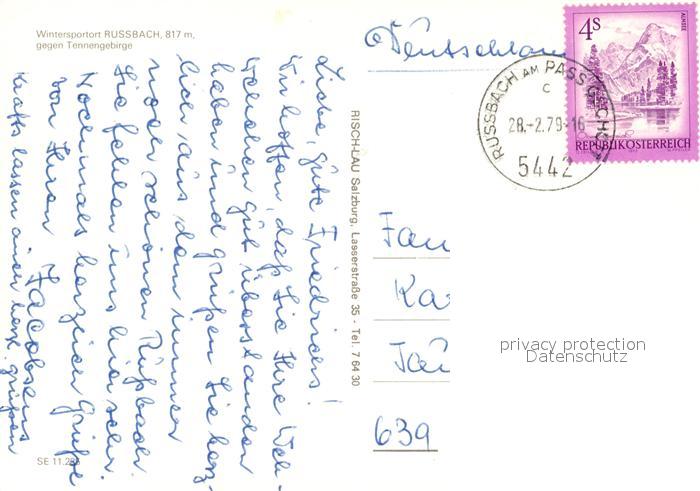 Wintersportort RUSSBACH, 817 m,
gegen Tennengebirge
Liebe, gute Friedrichs!
Wir hoffen daß Sie Ihre
gut überstanden
haben und grüßen Sie herz-
lich aus dem immer
noch schönen Rußbach.
Sie fehlen uns hier sehr.
Nochmals herzlichen Grüße
von Ihren Jacobsens
lassen auch herzl. grüßen
SE 11.285
RISCH-LAU Salzburg, Lasserstraße 35 - Tel. 7 64 30
Deutschlan
4S
ALMSEE
REPUBLIK ÖSTERREICH
RUSSBACH AM PASS GSCHÜTT
C
28.-2.79-16
5442
Fam
Ka
Tau
639
privacy protection
Datenschutz